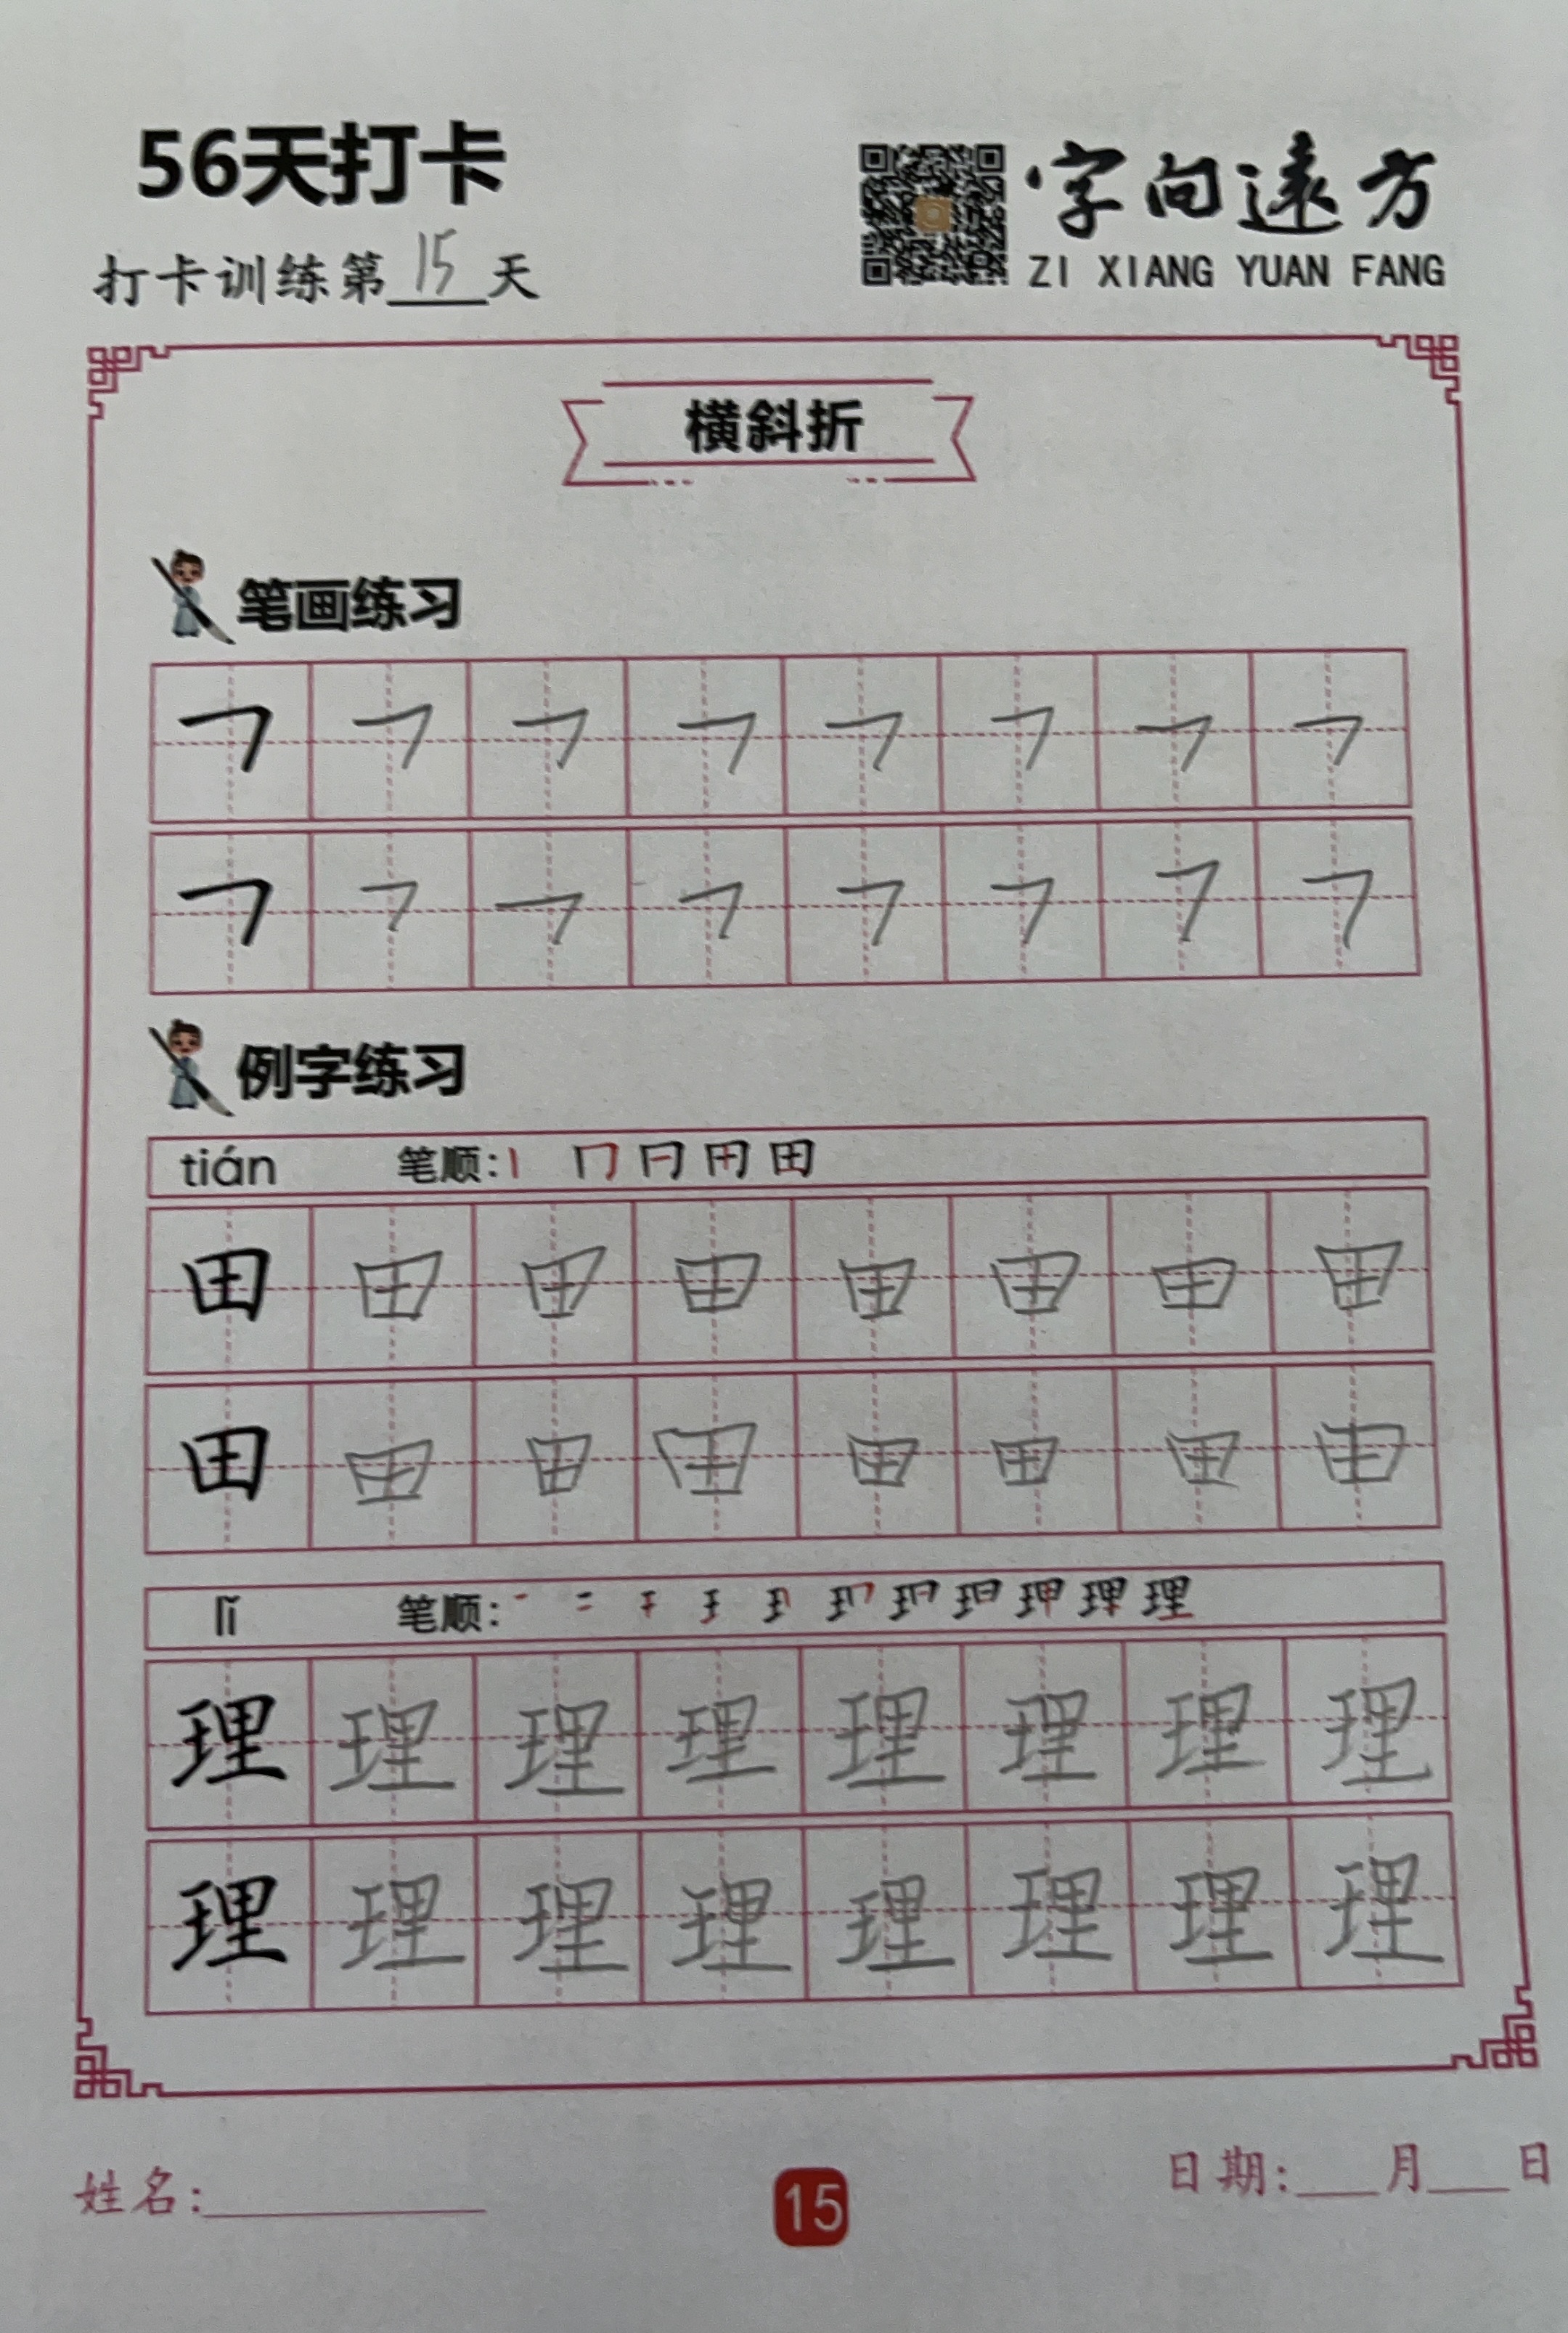 56天打卡
字向遠方
打卡训练第15天
ZI XIANG YUAN FANG
横斜折
笔画练习
㇕ ㇕ ㇕ ㇕ ㇕ ㇕ ㇕ ㇕
㇕ ㇕ ㇕ ㇕ ㇕ ㇕ ㇕ ㇕
例字练习
tián 笔顺:丨 冂 田
田 田 田 田 田 田 田 田
田 田 田 田 田 田 田 田
lǐ 笔顺: 理
理 理 理 理 理 理 理 理
理 理 理 理 理 理 理 理
姓名:
15
日期:___月___日